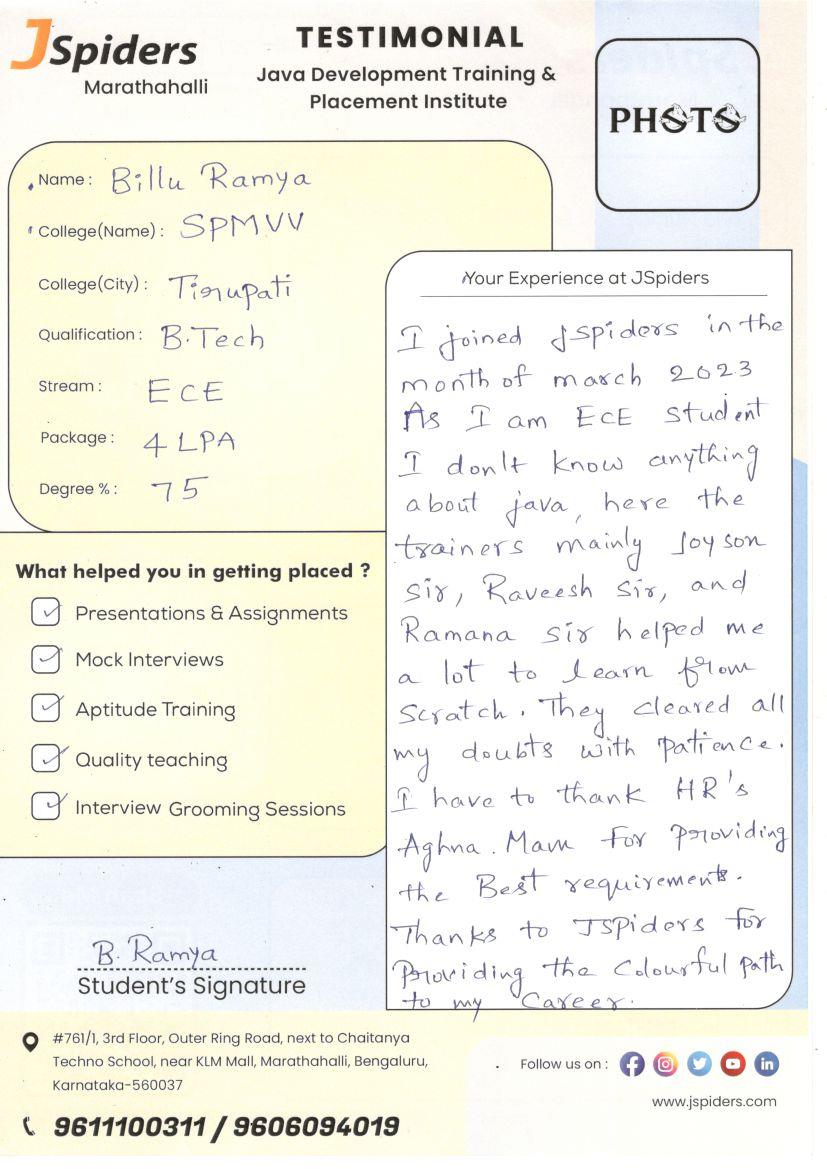 JSpiders
Marathahalli
TESTIMONIAL
Java Development Training &
Placement Institute
PHOTO
Name : Billu Ramya
College(Name) : SPMVV
College(City) : Tirupati
Qualification : B.Tech
Stream : ECE
Package : 4 LPA
Degree % : 75
What helped you in getting placed ?
Presentations & Assignments
Mock Interviews
Aptitude Training
Quality teaching
Interview Grooming Sessions
B. Ramya
Student's Signature
Your Experience at JSpiders
I joined JSpiders in the
month of march 2023
As I am ECE Student
I don't know anything
about java, here the
trainers mainly Joyson
sir, Raveesh sir, and
Ramana sir helped me
a lot to learn from
scratch. They cleared all
my doubts with patience.
I have to thank HR's
Aghna. Mam for providing
the Best requirements.
Thanks to JSPiders for
Providing the colourful path
to my career.
#761/1, 3rd Floor, Outer Ring Road, next to Chaitanya
Techno School, near KLM Mall, Marathahalli, Bengaluru,
Karnataka-560037
9611100311 / 9606094019
Follow us on :
www.jspiders.com